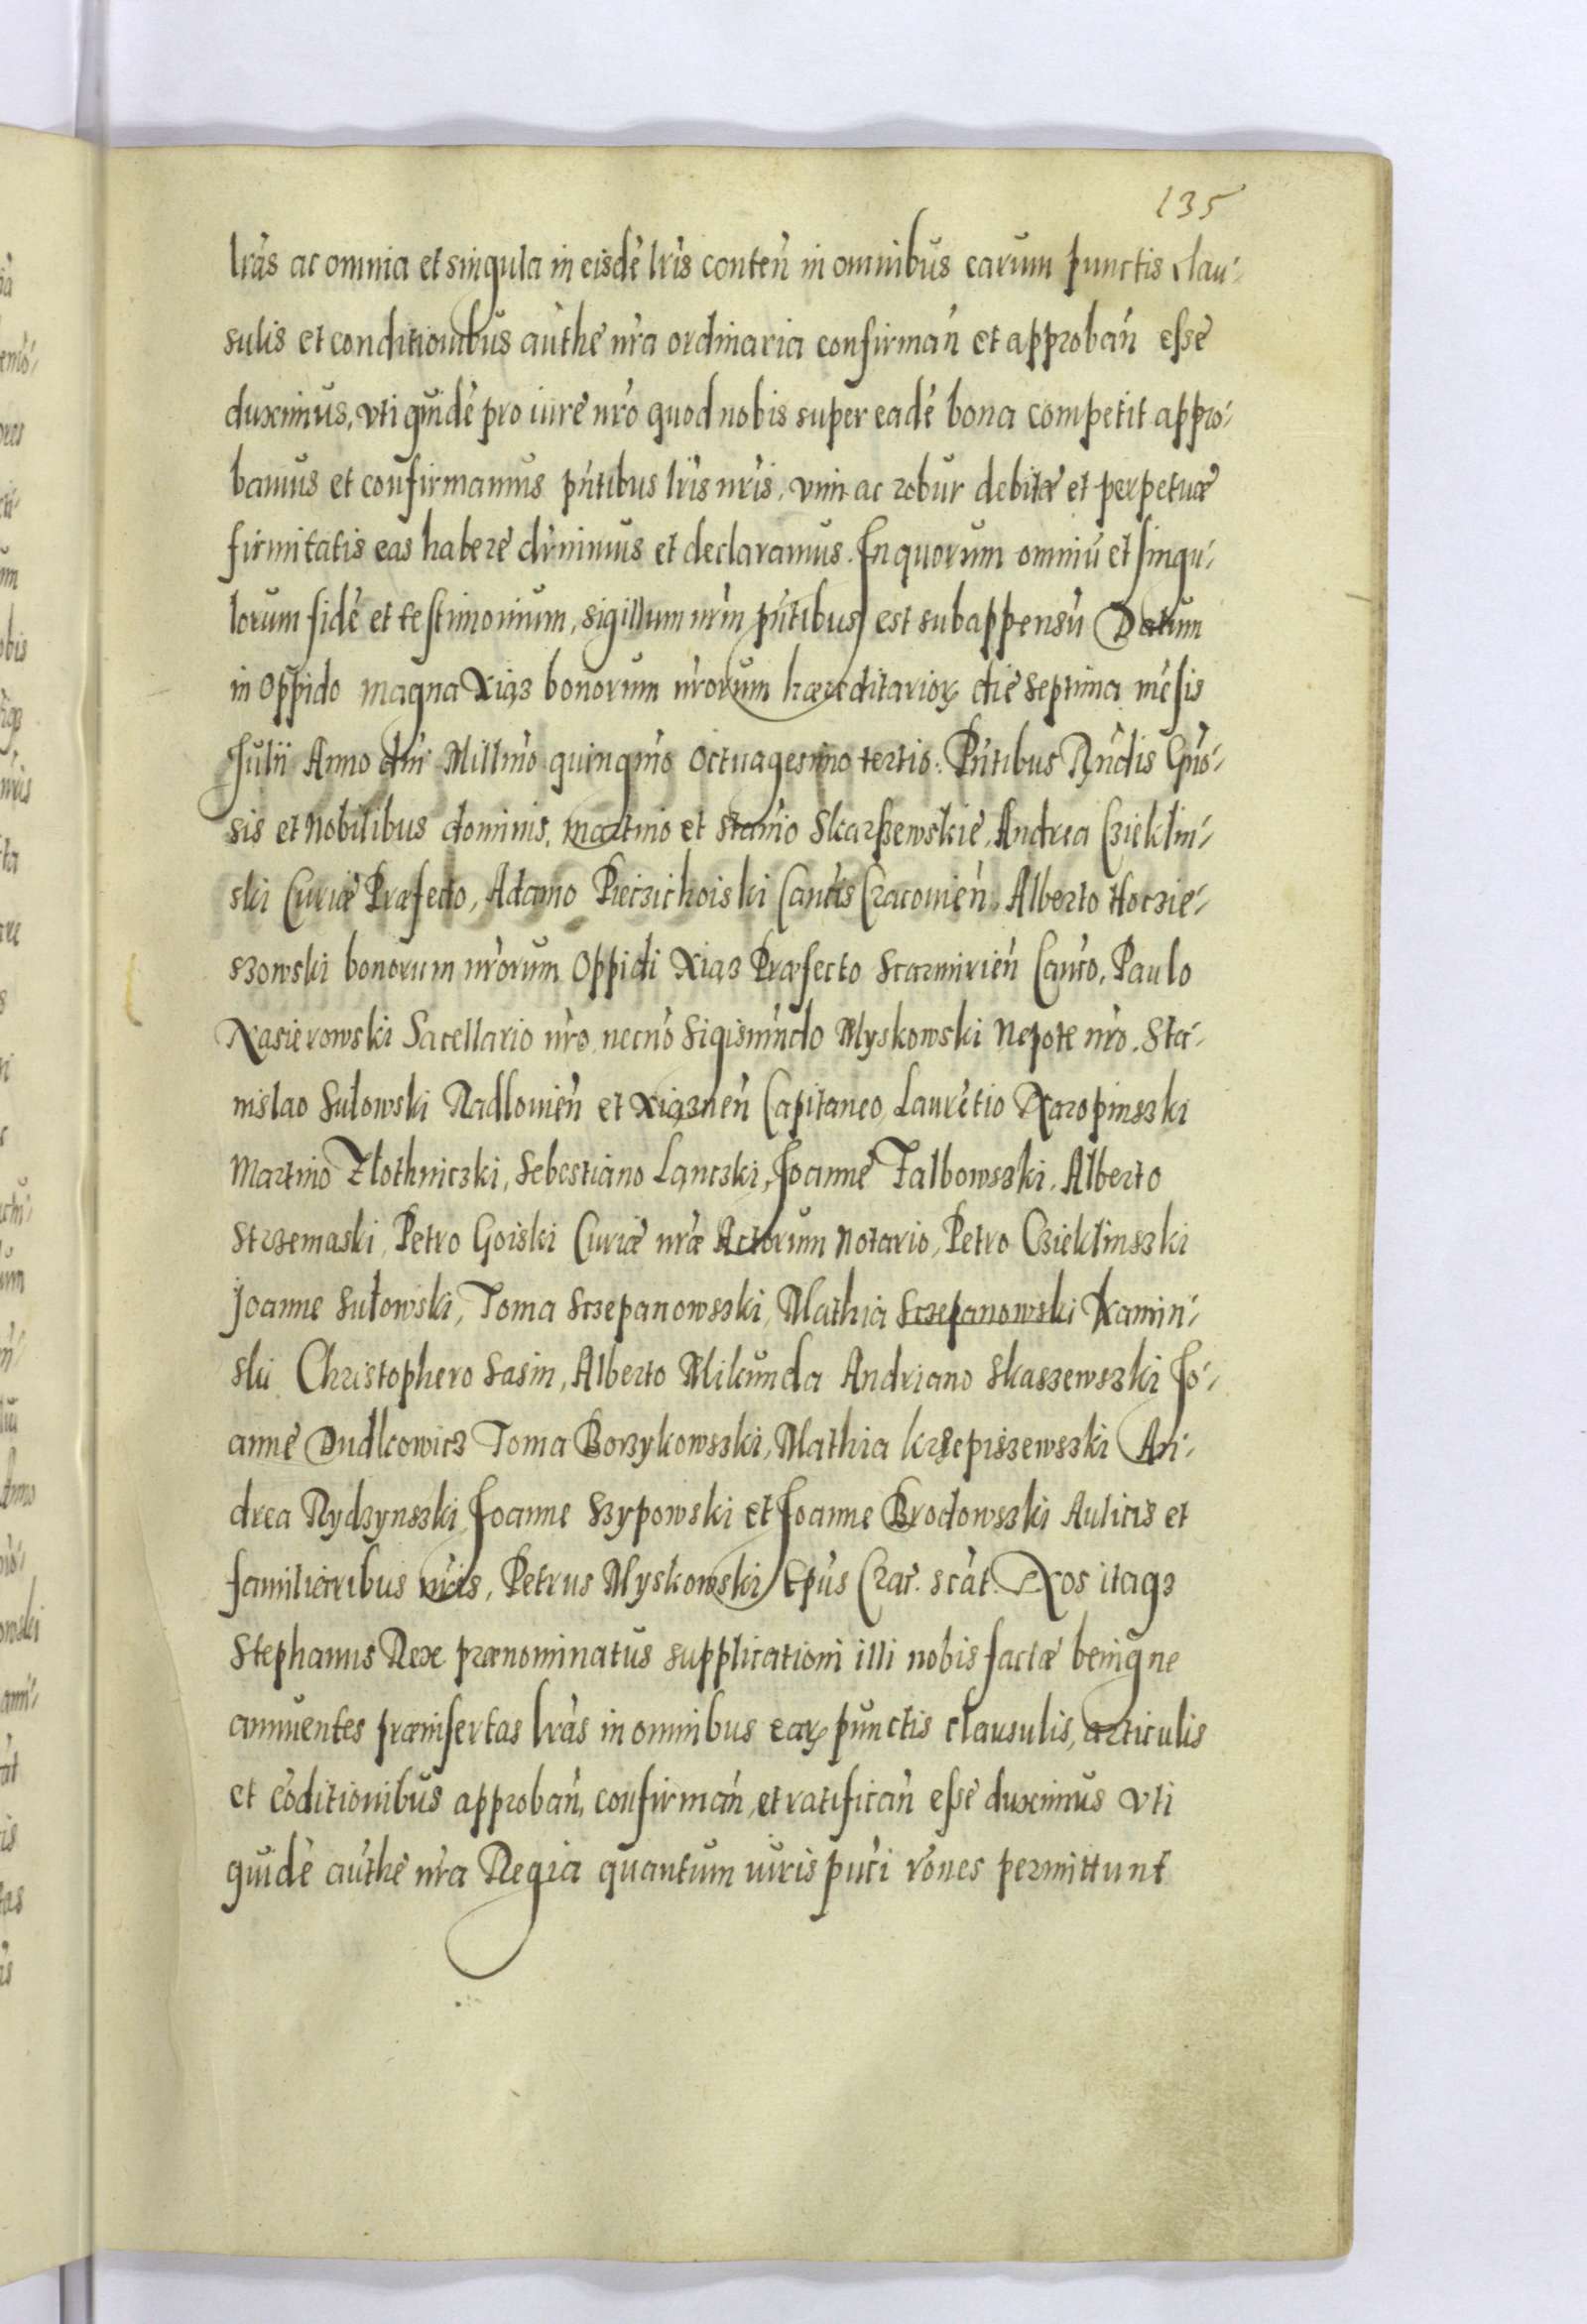 135
lrãs ac omnia et singula in eisdẽ lrĩs conteñ in omnibus earum punctis clau-
sulis et conditionibus authẽ nrã ordinaria confirmañ et approbañ esse
duximus, vti quidẽ pro iure nrõ quod nobis super eadẽ bona competit appro-
bamus et confirmamus pñtibus lrĩs nrĩs, vim ac robur debitæ et perpetuæ
firmitatis eas habere dñimus et declaramus. In quorum omniũ et singu-
lorum fidẽ et testimonium, sigillum nrm̃ pñtibus est subappensũ Datum
in Oppido magna Xiąz bonorum nrõrum hæreditarioꝝ die septima mẽsis
Julii Anno dnĩ Millmõ quingmõ octuagesimo tertio. Pñtibus Rñdis Gñõ-
sis et Nobilibus dominis, martino et stañio Skarszewskie, Andrea Czieklin-
ski Curiæ Præfecto, Adamo Pieczichoiski Cantĩs Cracovieñ, Alberto Hoczie-
szowski bonorum nrõrum Oppidi Xiaz Præfecto Scarmirieñ Cancõ, Paulo
Kasierowski Sacellario nrõ, necnõ Sigismũdo Myskowski Nepote nrõ. Sta-
nislao Sułowski Radlovieñ et Xiązneñ Capitaneo, Laurẽtio Karopinszki
Martino Złothniczki, Sebestiano Lanczki, Joanne Falbowszki, Alberto
Strzemaski, Petro Goiski Curiæ nræ̃ Actorum Notario, Petro Czieklinszki
Joanne Sułowski, Toma Sczepanowszki, Mathia Sczepanowski Kamin-
ski Christophero Sasin, Alberto Mikunda Andriano Skaszewszki Jo-
anne Dudkowicz Toma Borzykowszki, Mathia krzepiszewszki An-
drea Rydzynszki Joanne Szypowski et Joanne Brodowszki Aulicis et
familiaribus nrĩs, Petrus Myskowski Epũs Crac̃. scãt. Nos itaqꝫ
Stephanus Rex prænominatus supplicationi illi nobis factæ benigne
annuentes præinsertas lrãs in omnibus eaꝝ punctis clausulis, articulis
et cõditionibus approbañ, confirmañ, et ratificañ esse duximus vti
quidẽ authẽ nrã Regia quantum iuris puri rõnes permittunt